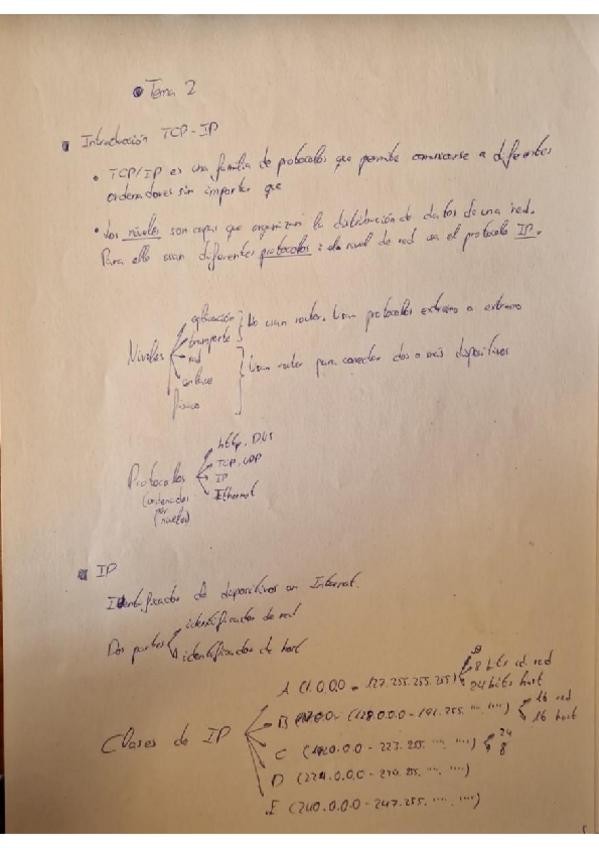 Tema 2
Introducción TCP-IP
• TCP/IP es una familia de protocolos que permite comunicarse a diferentes
ordenadores sin importar que
• Los niveles son capas que organizan la distribución de datos de una red.
Para ello usan diferentes protocolos : el nivel de red usa el protocolo IP.
Niveles
aplicación
transporte
No usan router. Usan protocolos extremo a extremo
red
enlace
físico
Usan router para conectar dos o más dispositivos
Protocolos
(ordenados
por
niveles)
http, DNS
TCP, UDP
IP
Ethernet
IP
Identificador de dispositivos en Internet.
Dos partes
identificador de red
identificador de host
Clases de IP
A (1.0.0.0 - 127.255.255.255)
8 bits id. red
24 bits host
B (128.0.0.0 - 191.255. "" . "")
16 red
16 host
C (192.0.0.0 - 223.255. "" . "")
24
8
D (224.0.0.0 - "" . "")
E (240.0.0.0 - 247.255. "" . "")